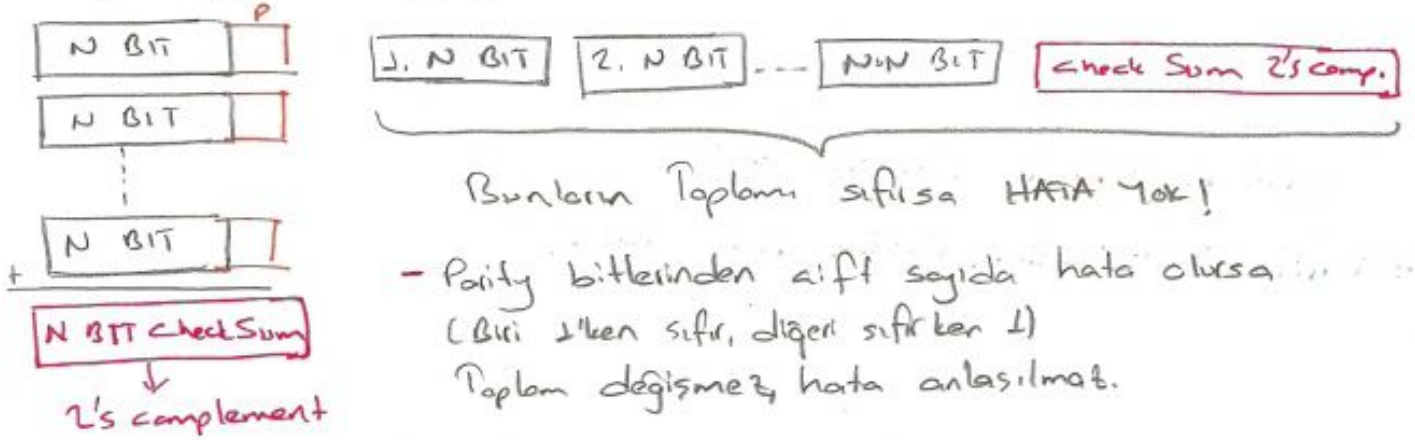 P
N BIT
N BIT
N BIT
+
N BIT CheckSum
2's complement
1. N BIT 2. N BIT .... N.N BIT Check Sum 2's comp.
Bunların Toplamı sıfırsa HATA YOK!
- Parity bitlerinden çift sayıda hata olursa
(Biri 1'ken sıfır, diğeri sıfırken 1)
Toplam değişmez, hata anlaşılmaz.